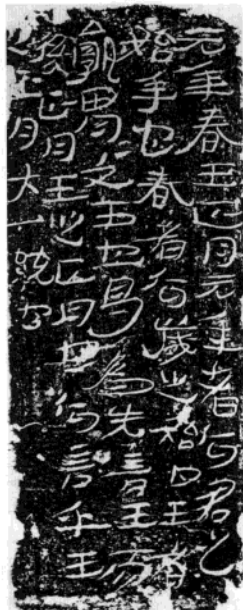 元年春王正月元年者何君之
始年也春者何歲之始也王者
孰謂謂文王也曷為先言王而
後正月王之正月也何言乎王
正月大一統也